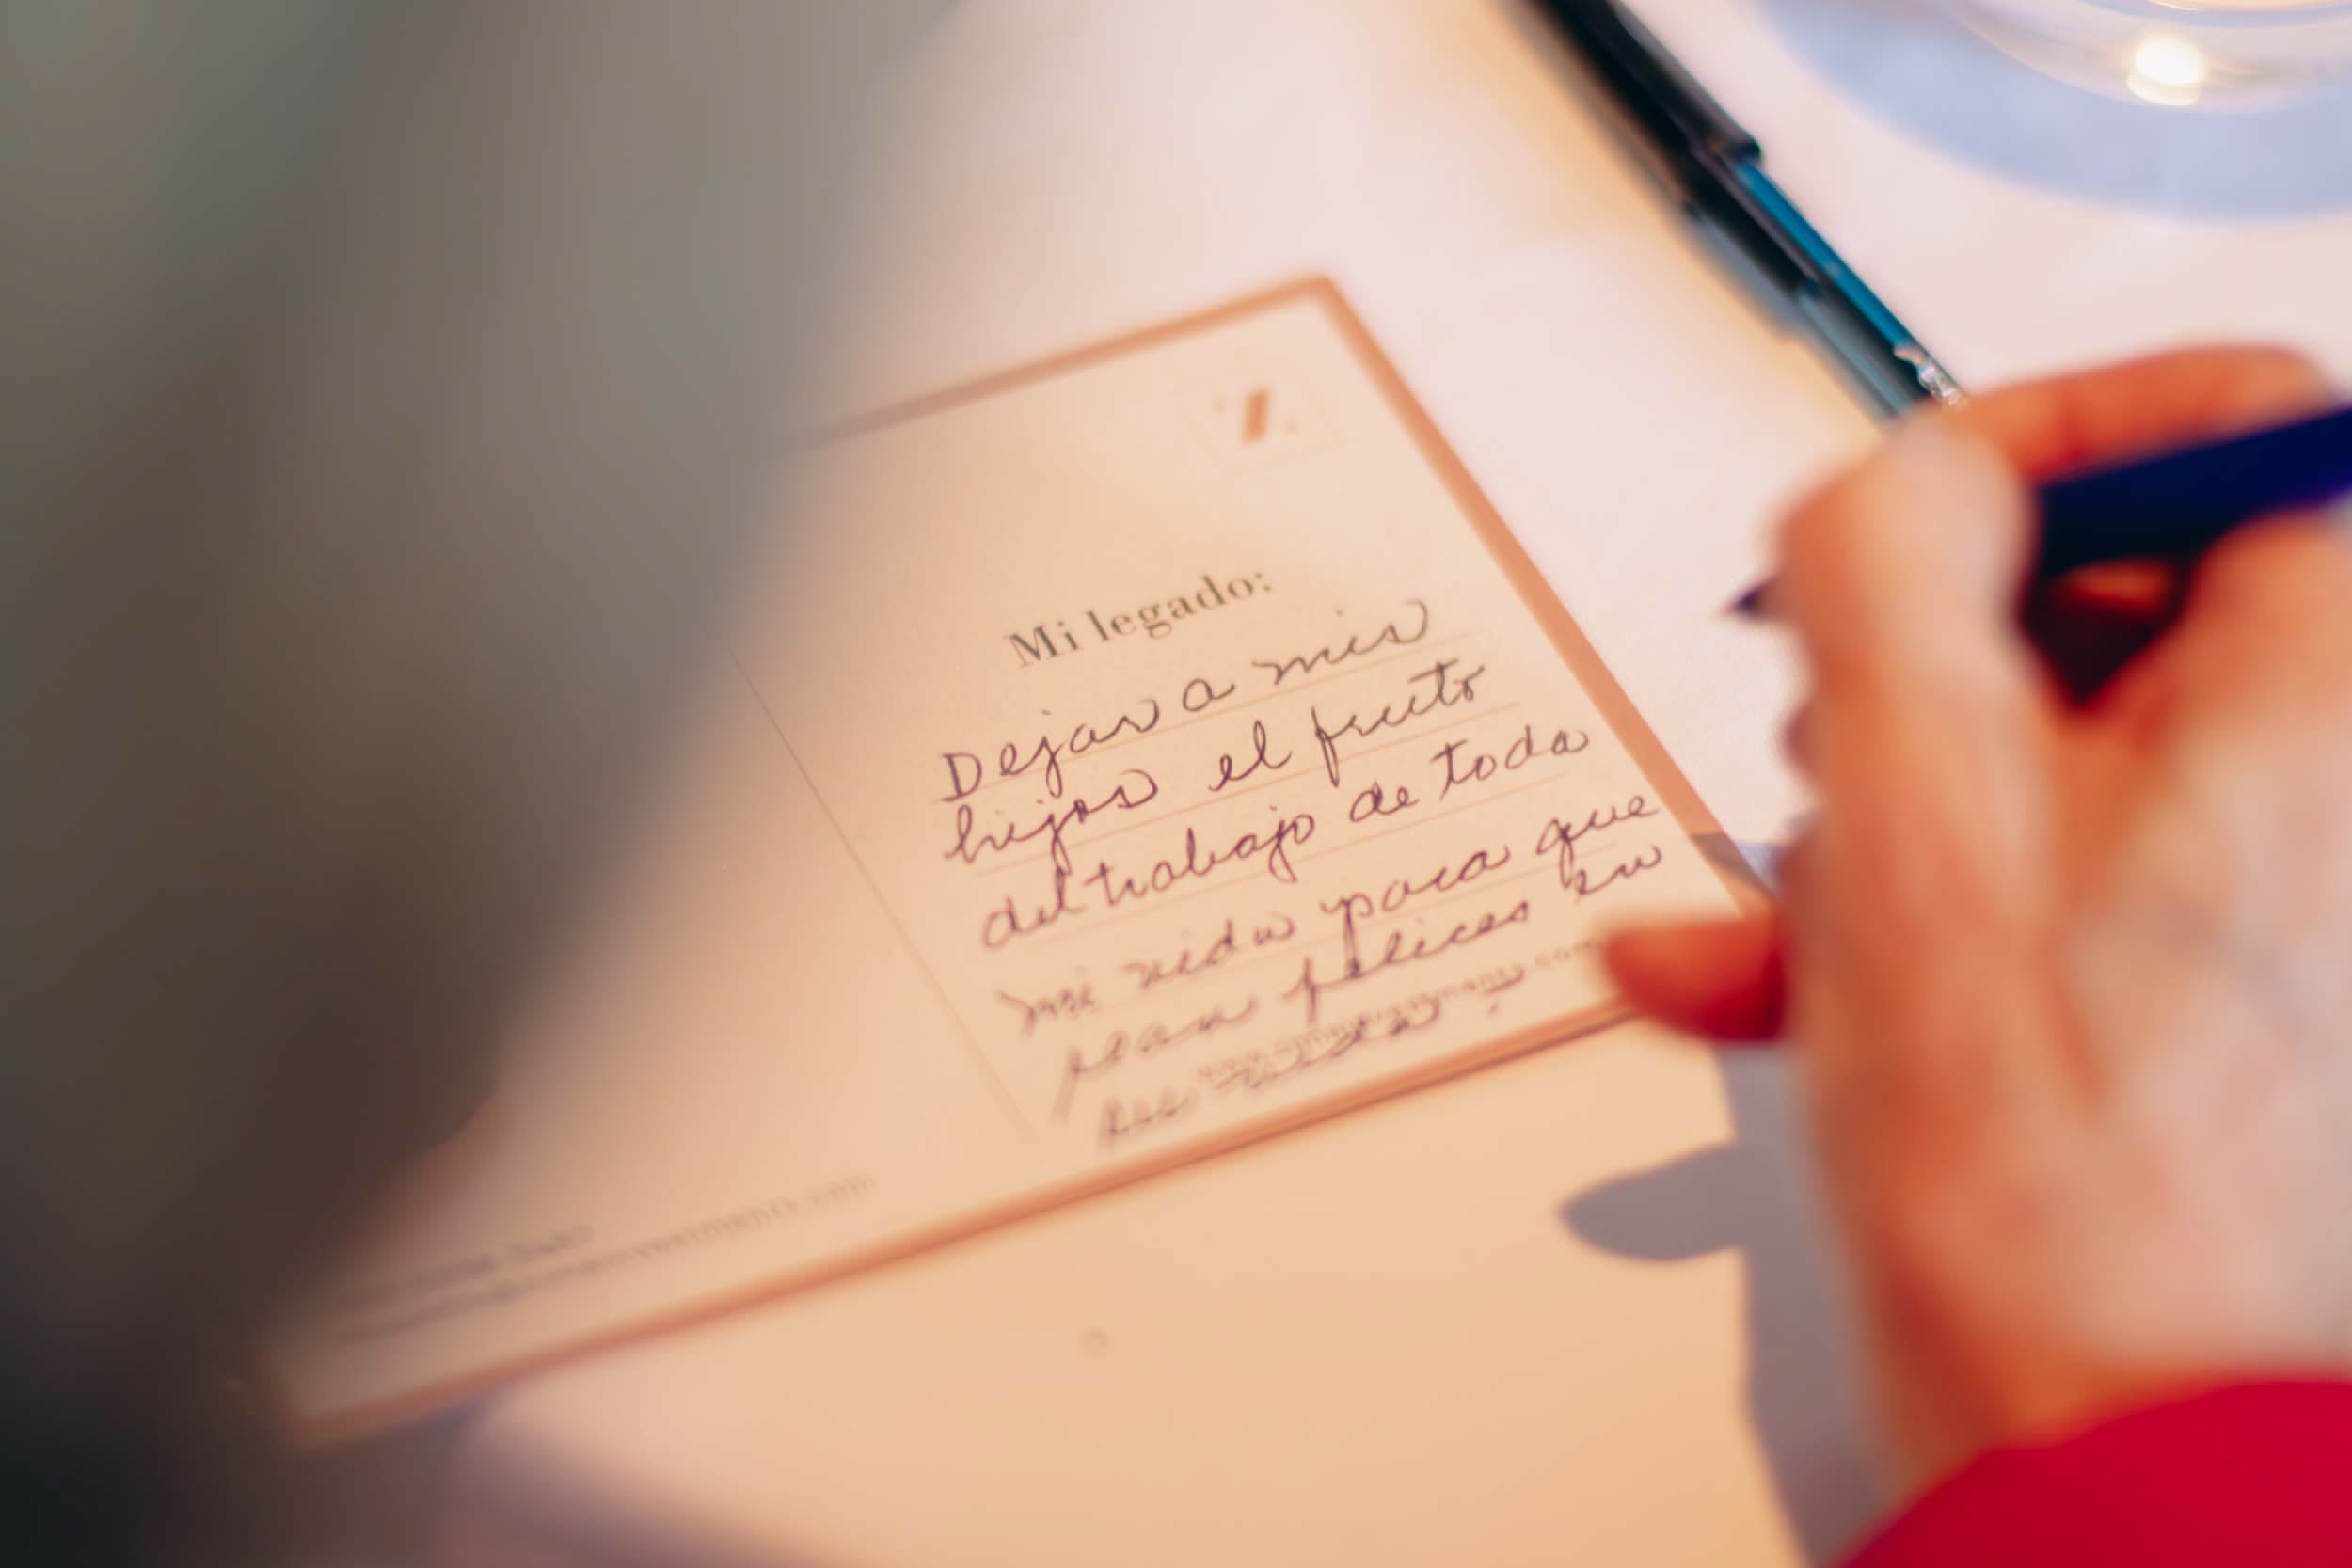 Mi legado:
Dejar a mis
hijos el fruto
del trabajo de toda
mi vida para que
sean felices en
su vida.